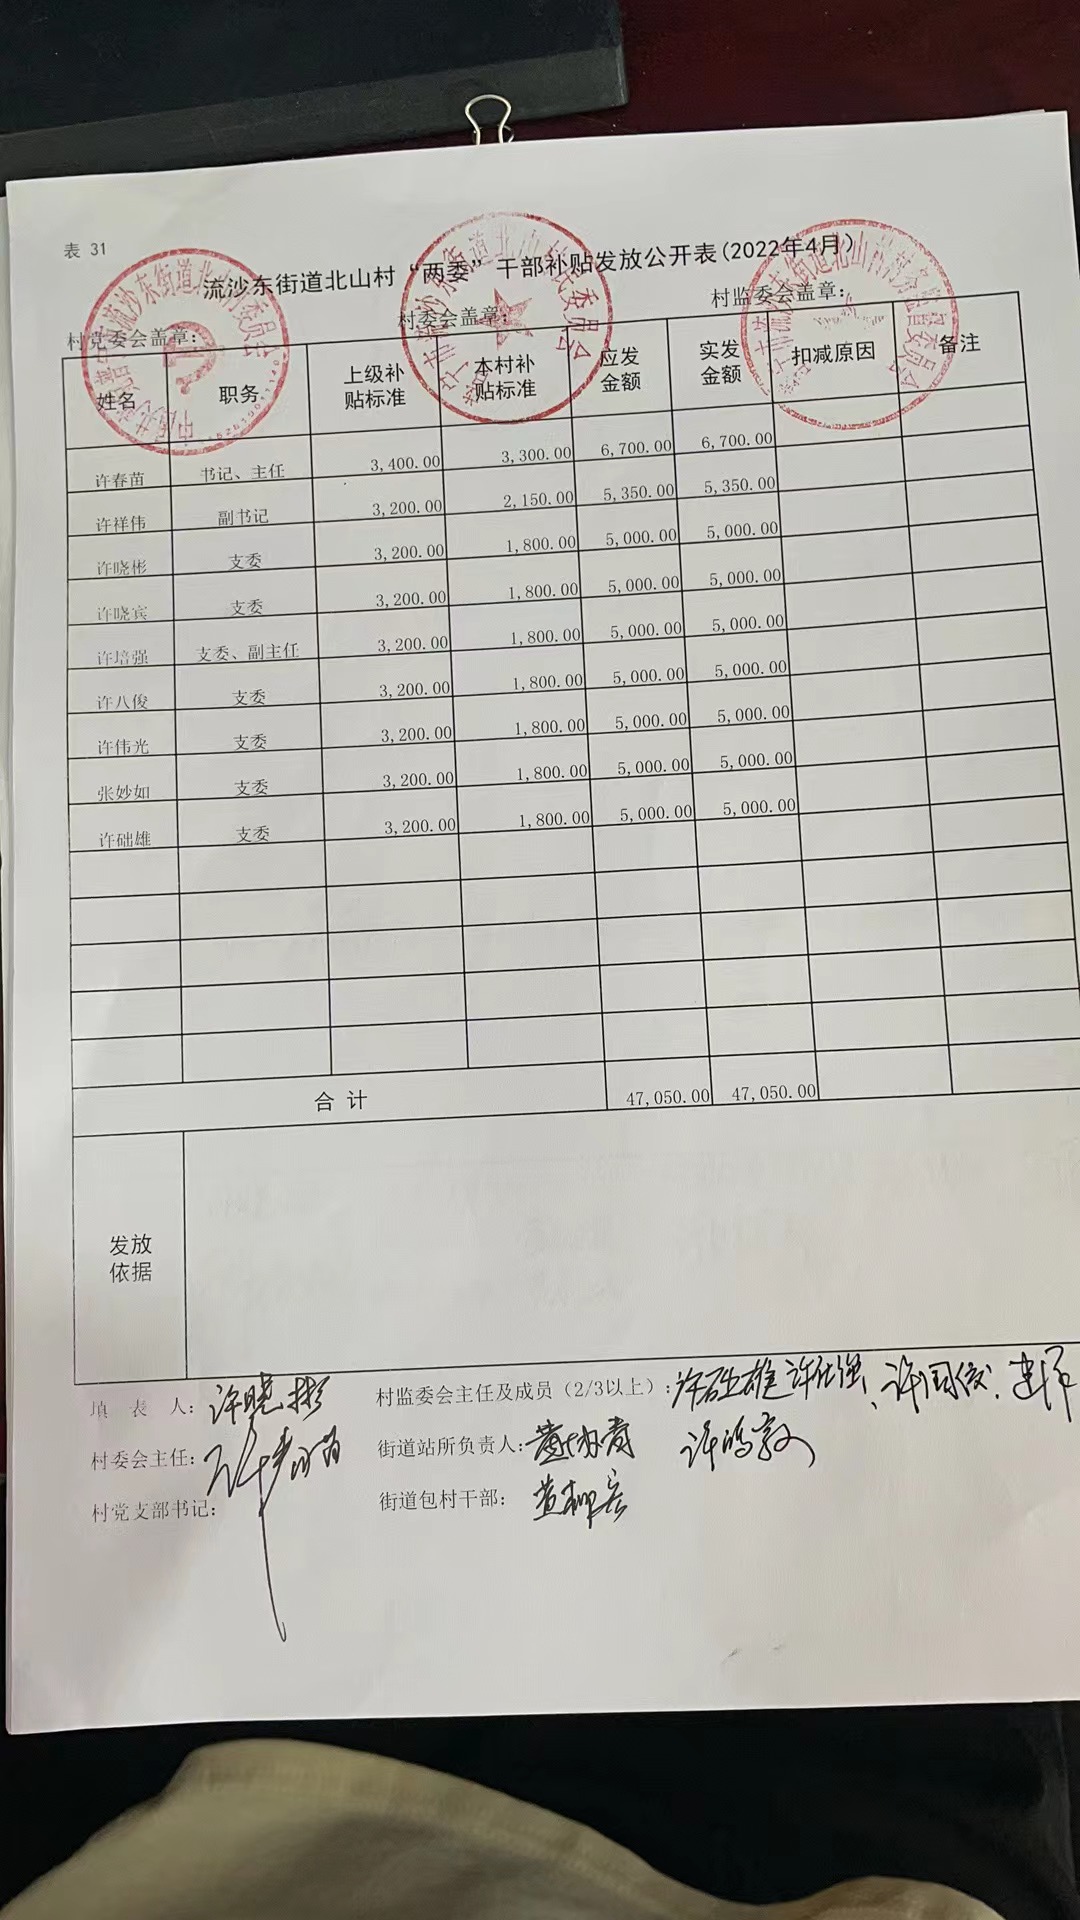 表 31
流沙东街道北山村“两委”干部补贴发放公开表(2022年4月)
村党委会盖章: 村委会盖章: 村监委会盖章:
姓名 职务 上级补贴标准 本村补贴标准 应发金额 实发金额 扣减原因 备注
许春苗 书记、主任 3,400.00 3,300.00 6,700.00 6,700.00
许祥伟 副书记 3,200.00 2,150.00 5,350.00 5,350.00
许晓彬 支委 3,200.00 1,800.00 5,000.00 5,000.00
许晓宾 支委 3,200.00 1,800.00 5,000.00 5,000.00
许培强 支委、副主任 3,200.00 1,800.00 5,000.00 5,000.00
许八俊 支委 3,200.00 1,800.00 5,000.00 5,000.00
许伟光 支委 3,200.00 1,800.00 5,000.00 5,000.00
张妙如 支委 3,200.00 1,800.00 5,000.00 5,000.00
许础雄 支委 3,200.00 1,800.00 5,000.00 5,000.00
合 计 47,050.00 47,050.00
发放依据
填 表 人: 许晓彬 村监委会主任及成员（2/3以上）: 许础雄
村委会主任: 许春苗 街道站所负责人:
村党支部书记: 街道包村干部: